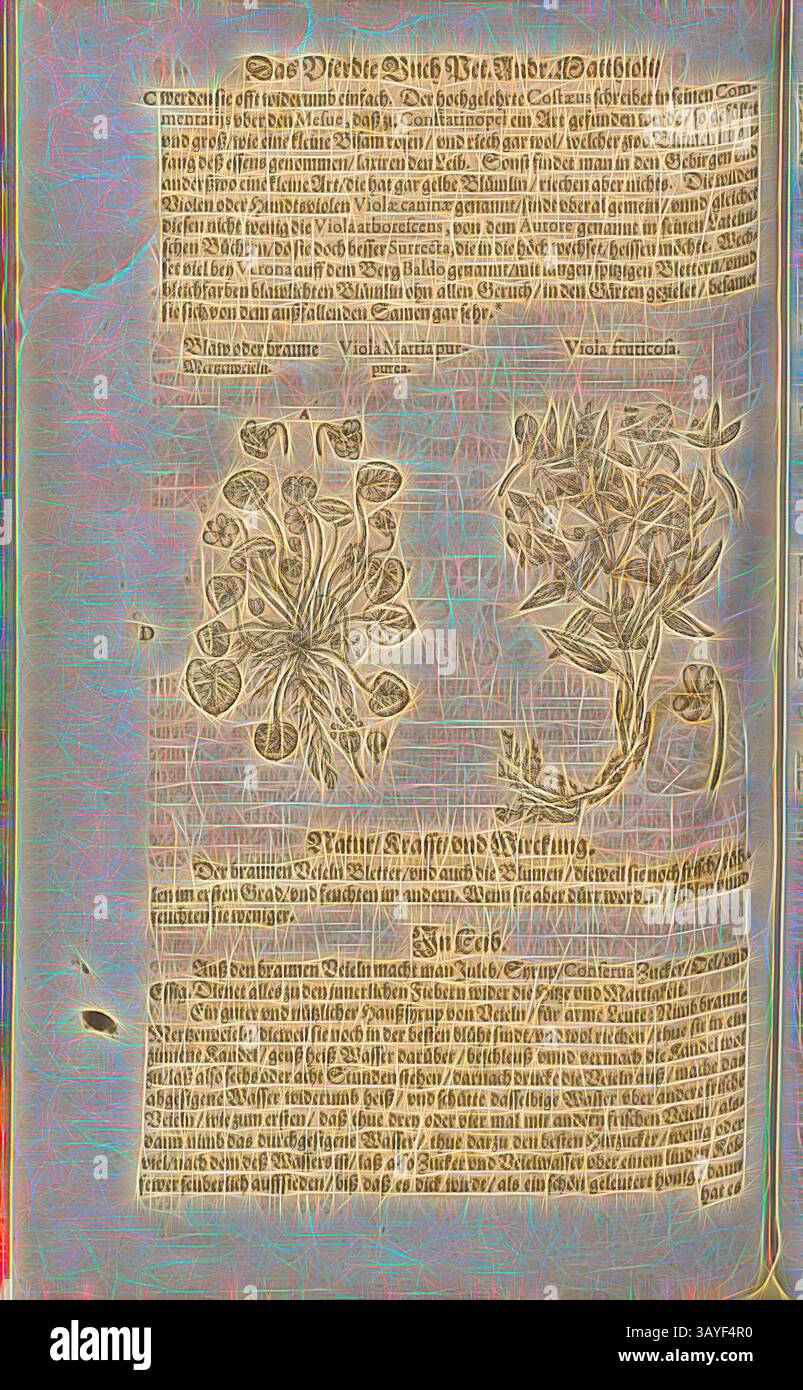 Das Vierdte Buch Pet. Andr. Matthioli/
C werden sie offt widerumb einfach. Der hochgelehrte Costæus schreibet in seinen Com-
mentarijs vber den Mesue, daß zu Constatinopel ein Art gefunden werde/ so gefüllet
vnd groß/ wie eine kleine Bisam rosen/ vnd riech gar wol/ welcher zwo Blumen im an
fang deß essens genommen/ laxiren den Leib. Sonst findet man in den Gebirgen vnd
anderßwo eine kleine Art/ die hat gar gelbe Blümlin/ riechen aber nichts. Die wilden
Violen oder Hundtsviolen Violæ caninæ genannt/ sindt vberal gemein/ vnnd gleichet
diesen nicht wenig die Viola arborescens, von dem Autore genannt in seinen Lateini-
schen Büchern/ do sie doch besser Surrecta, die in die höch wechset/ heissen möchte. Wech-
set viel bey Verona auff dem Berg Baldo genannt/ mit langen spizigen Blettern/ vnnd
bleichfarben blawlichten Blümlin ohn allen Geruch/ in den Gärten gezielet/ besamet
sie sich von dem außfallenden Samen gar sehr.*
Blaw oder braune Viola Martia pur- Viola fruticosa.
Mertzenveieln. purea.
A
D
Natur/ Krafft/ vnd Wirckung.
Der braunen Veieln Bletter/ vnd auch die Blumen/ dieweil sie noch frisch/ küh-
len im ersten Grad/ vnd feuchten im andern. Wenn sie aber dürr worden/ kühlen vnnd
feuchten sie weniger.
In Leib.
Auß den braunen Veieln macht man Juleb/ Syrup/ Conserua Zucker/ Oel/ vnd
Essig. Dienet alles zu den innerlichen Fiebern wider die Hitze vnd Mattigkeit.
Ein guter vnd nützlicher Haußsyrup von Veieln/ für arme Leute: Nimb braune
Mertzenveieln/ dieweil sie noch in der besten blühe sindt/ vnd wol riechen/ thue sie in ein
zinnene Kandel/ geuß heiß Wasser darüber/ beschleuß vnnd vermach die Kandel wol
zu/ laß also sechs oder acht Stunden stehen/ darnach drücke die Veieln auß/ mache das
abgesigene Wasser widerumb heiß/ vnd schütte dasselbige Wasser vber andere frische
Veieln/ wie zum ersten/ daß thue drey oder vier mal mit andern frischen Veieln/ als
dann nimb das durchgesigene Wasser/ thue darzu den besten Hutzucker/ wenig oder
viel/ nach dem deß Wassers ist/ laß also Zucker vnd Veielwasser vber einem linden Kol-
fewer seuberlich auffsieden/ biß daß es dick wurde/ als ein schön geleutert honig/ dann
hat es
alamy
Image ID: 3AYF4R0
www.alamy.com